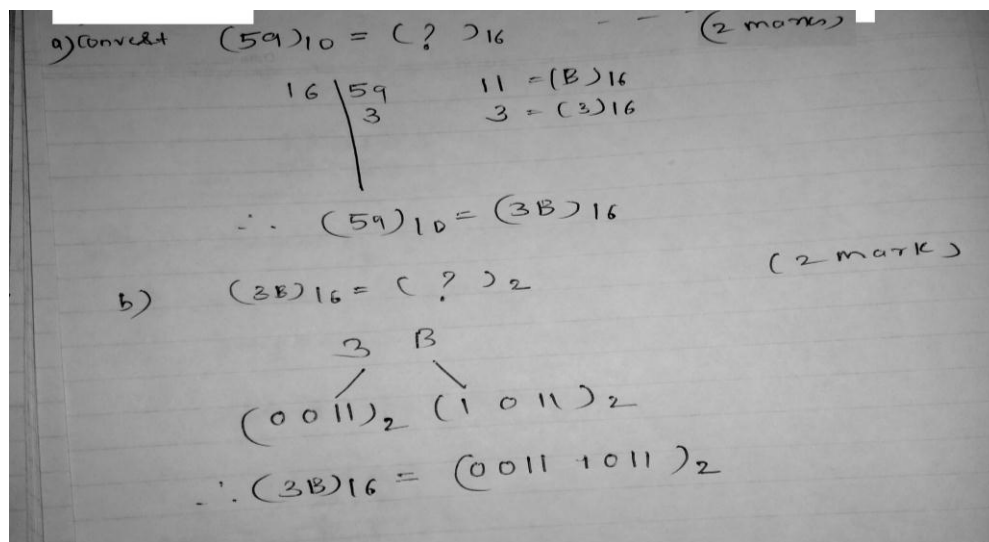 a) Convert (59)10 = (?)16 - - - (2 marks)
16 59 11 = (B)16
3 3 = (3)16
∴ (59)10 = (3B)16
(2 mark)
b) (3B)16 = (?)2
3 B
(0011)2 (1011)2
∴ (3B)16 = (0011 1011)2